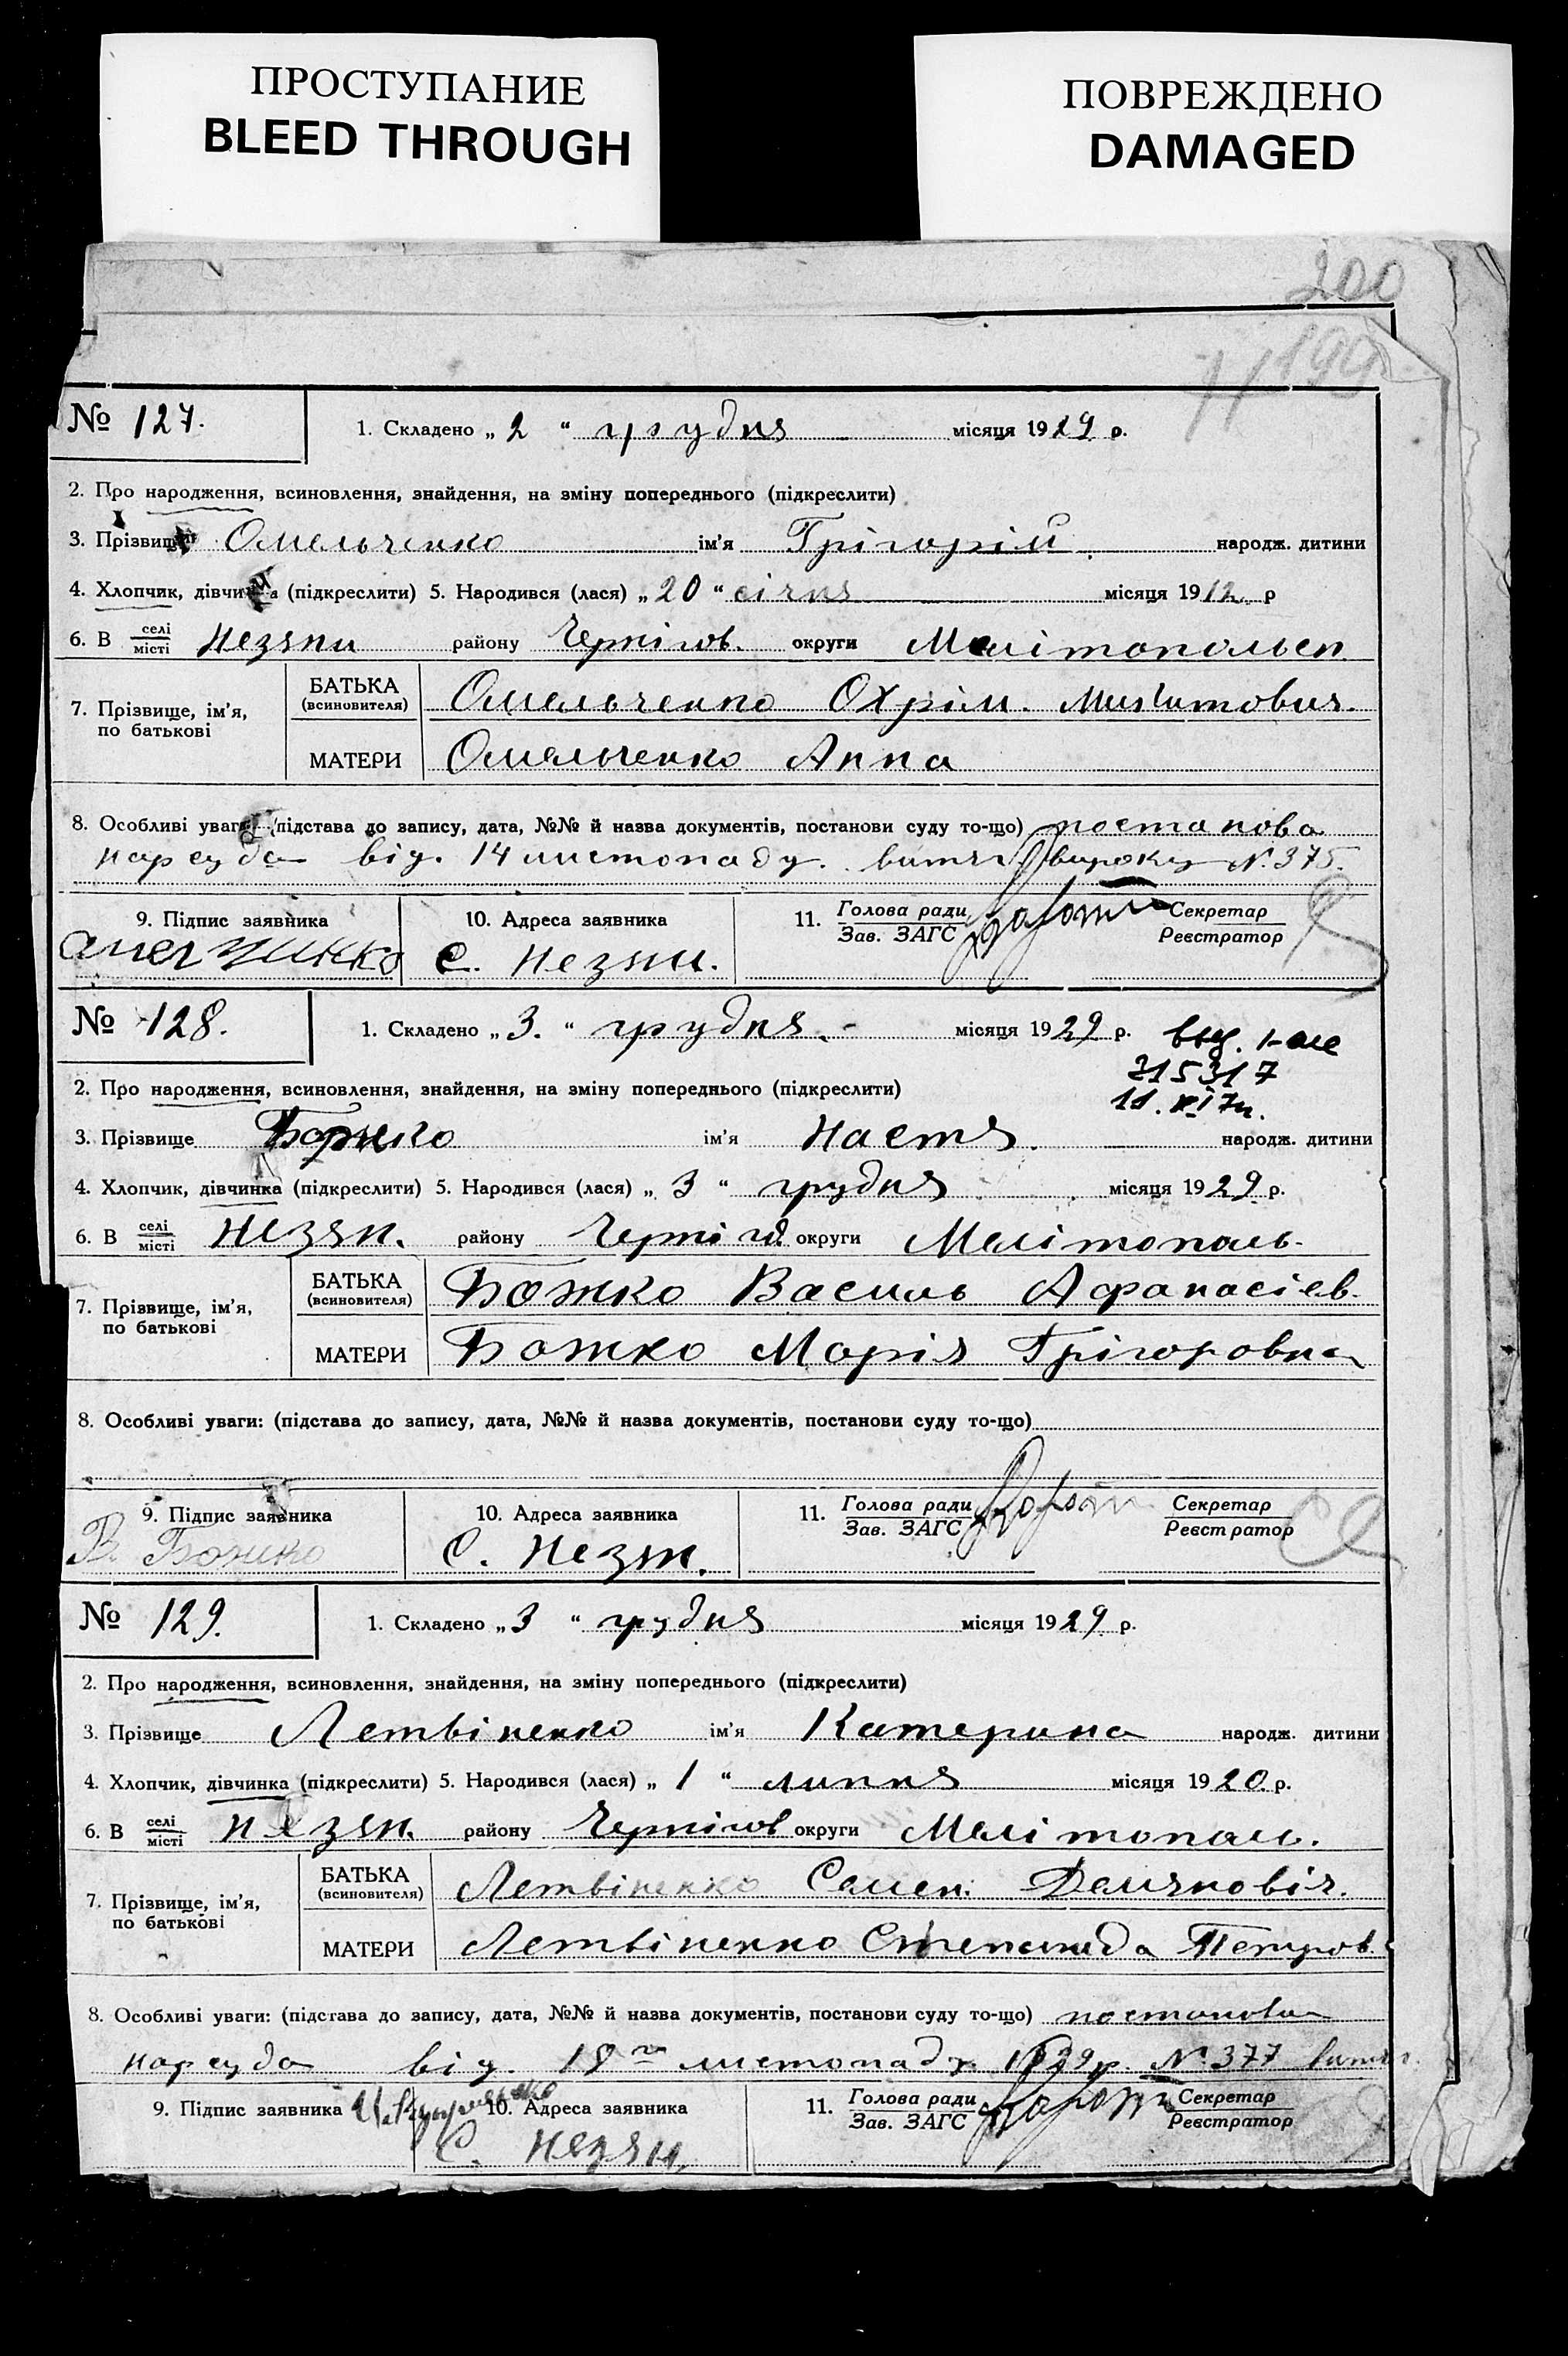 ПРОСТУПАНИЕ
BLEED THROUGH
ПОВРЕЖДЕНО
DAMAGED
200
199
№ 127.
1. Складено „ 2 “ грудня місяця 1929 р.
2. Про народження, всиновлення, знайдення, на зміну попереднього (підкреслити)
3. Прізвище Омельченко ім'я Грігорій народж. дитини
4. Хлопчик, дівчинка (підкреслити) 5. Народився (лася) „ 20 “ січня місяця 1912 р
6. В селі/місті Незяни району Чернігов. округи Мелітопольсп.
7. Прізвище, ім'я, по батькові
БАТЬКА (всиновителя) Омельченко Охрім.
МАТЕРИ Омельченко Анна
8. Особливі уваги: (підстава до запису, дата, №№ й назва документів, постанови суду то-що) постанова
нарсуда від. 14 листопаду. вироку N. 375.
9. Підпис заявника
10. Адреса заявника
11. Голова ради/Зав. ЗАГС
Секретар/Реєстратор
с. Незян.
№ 128.
1. Складено „ 3. “ грудня. місяця 1929 р.
выд. 1-ое
315317
2. Про народження, всиновлення, знайдення, на зміну попереднього (підкреслити)
3. Прізвище Божко ім'я Настя народж. дитини
4. Хлопчик, дівчинка (підкреслити) 5. Народився (лася) „ 3 “ грудня місяця 1929 р.
6. В селі/місті Незян. району Черніг. округи Мелітополь.
7. Прізвище, ім'я, по батькові
БАТЬКА (всиновителя) Божко Василь Афанасіев.
МАТЕРИ Божко Марія Грігоровна
8. Особливі уваги: (підстава до запису, дата, №№ й назва документів, постанови суду то-що)
9. Підпис заявника
10. Адреса заявника
11. Голова ради/Зав. ЗАГС
Секретар/Реєстратор
В. Божко
С. Незян.
№ 129.
1. Складено „ 3 “ грудня місяця 1929 р.
2. Про народження, всиновлення, знайдення, на зміну попереднього (підкреслити)
3. Прізвище Летвіненко ім'я Катерина народж. дитини
4. Хлопчик, дівчинка (підкреслити) 5. Народився (лася) „ 1 “ липня місяця 1920 р.
6. В селі/місті Незян. району Чернігов округи Мелітопол.
7. Прізвище, ім'я, по батькові
БАТЬКА (всиновителя) Летвіненко Семен. Демяновіч.
МАТЕРИ Летвіненко Степанида Петров.
8. Особливі уваги: (підстава до запису, дата, №№ й назва документів, постанови суду то-що) постанова
нарсуда від. 18го листопаду 1929 р. N. 377
9. Підпис заявника
10. Адреса заявника
11. Голова ради/Зав. ЗАГС
Секретар/Реєстратор
С. Незян.